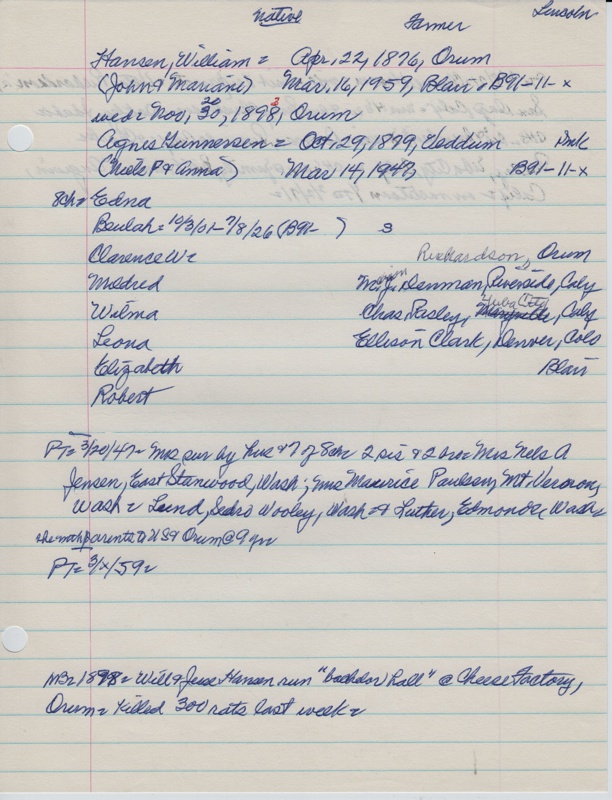 Native Farmer Lincoln
Hansen, William = Apr, 22, 1876, Orum
(John & Mariane) Mar, 16, 1959, Blair = B91-11-x
wed = Nov, 30, 1898, Orum 20 2
Agnes Gunnersen = Oct, 29, 1879, Denmk
Mar 14, 1947 B91-11-x
8ch = Edna
Beulah = 10/3/01-7/8/26 (B91- ) S
Clarence W = Richardson, Orum
Mildred Marion J. Denman, Riverside, Caly
Wilma Chas, Pasley, Yuba City, Caly
Leona Ellison Clark, Denver, Colo
Elizabeth Blair
Robert
PT = 3/20/47 = Mrs sur by hus & 7 of 8ch 2 sis & 2 bro = Mrs Nels A
Jensen, East Stanwood, Wash; Mrs Maurice Paulsen, Mt. Vernon,
Wash = Lund, Sedro Wooley, Wash = & Luther, Edmonds, Wash =
she parents to US & Orum @ 9 yr
PT = 3/x/59 =
1898 = Will & Jess Hansen run "bachelor hall" @ Cheese Factory,
Orum = Killed 300 rats last week =